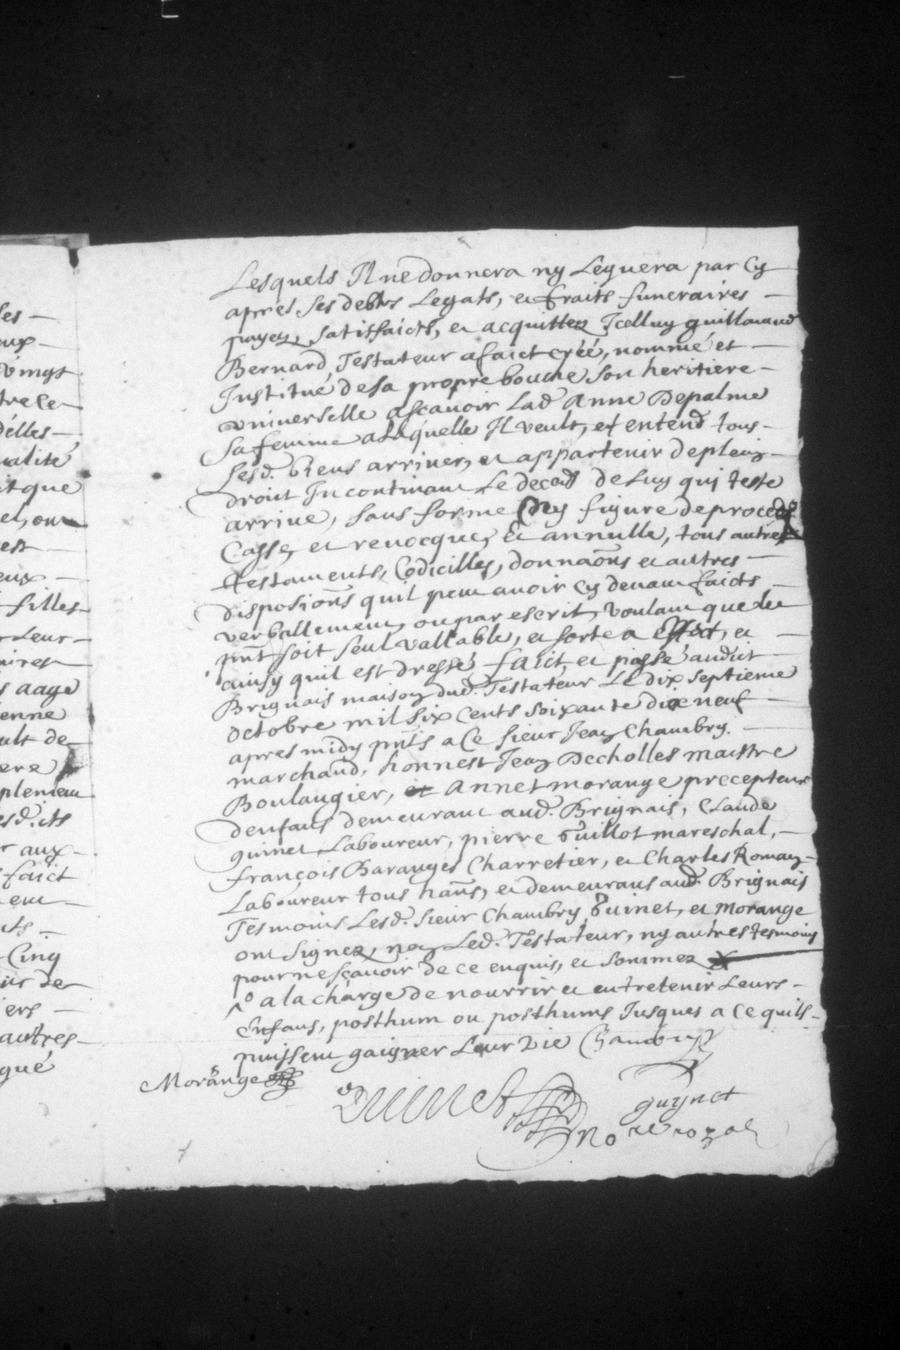 Lesquels Il ne donnera ny Leguera par Cy
apres ses debtes Legats, et fraits funeraires
payez, satisfaicts, et acquittez Icelluy guillaume
Bernard, Testateur a faict creé, nommé et
Institué de sa propre bouche son heritiere
universelle asçavoir Lad. Anne Depalme
sa femme a Laquelle Il veult, et entend tous
sesd. biens arriver, et appartenir de plein
droit Incontinant Le deces de Luy qui teste
arrive, sans forme ny figure de proces
Casse, et revocque, et annulle, tous autres
testaments, Codicilles, donnaōns et autres
disposiōns quil peut avoir cy devant faicts
verballement, ou par escrit, voulant que le
pnt soit seul vallable, et sorte a effect, et
ainsy quil est dressé faict et passé audict
Brignais maison dud. Testateur Le dix septieme
octobre mil six cents soixante dix neuf
apres midy pnts a Ce sieur Jean Chambry
marchand, honnest Jean Decholles maistre
Boulangier, et Annet morange precepteur
denfans demeurant aud. Brignais, Claude
guinet Laboureur, pierre Guillot mareschal,
françois Baranges Charretier, et Charles Romany
Laboureur tous hāns, et demeurans aud. Brignais
Tesmoins Lesd. sieur Chambry Guinet, et Morange
ont signez, non Led. Testateur, ny autres tesmoins
pour ne sçavoir de ce enquis, et sommez
a la charge de nourrir et entretenir Leurs
Enfans, posthum ou posthums Jusques a ce quils
puissent gaigner Leur vie Chambry
Morange
Guinet
guynet
no re royal
ses
eux
vingt
tre ce
delles
ualité
it que
et, ou
est
eux
filles
r Leur
aires
s aage
ienne
ult de
ere
plement
esd. its
r aux
faict
ent
its
Cinq
it de
iers
autres
gué